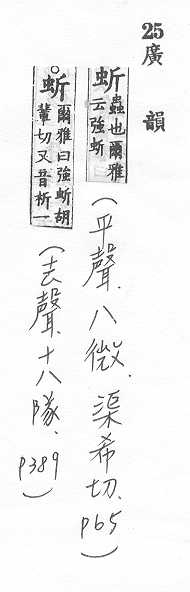 25廣韻
蚚蟲也爾雅云強蚚
(平聲、八微、渠希切、p65)
○蚚爾雅曰強蚚胡輩切又音祈一
(去聲、十八隊、p389)